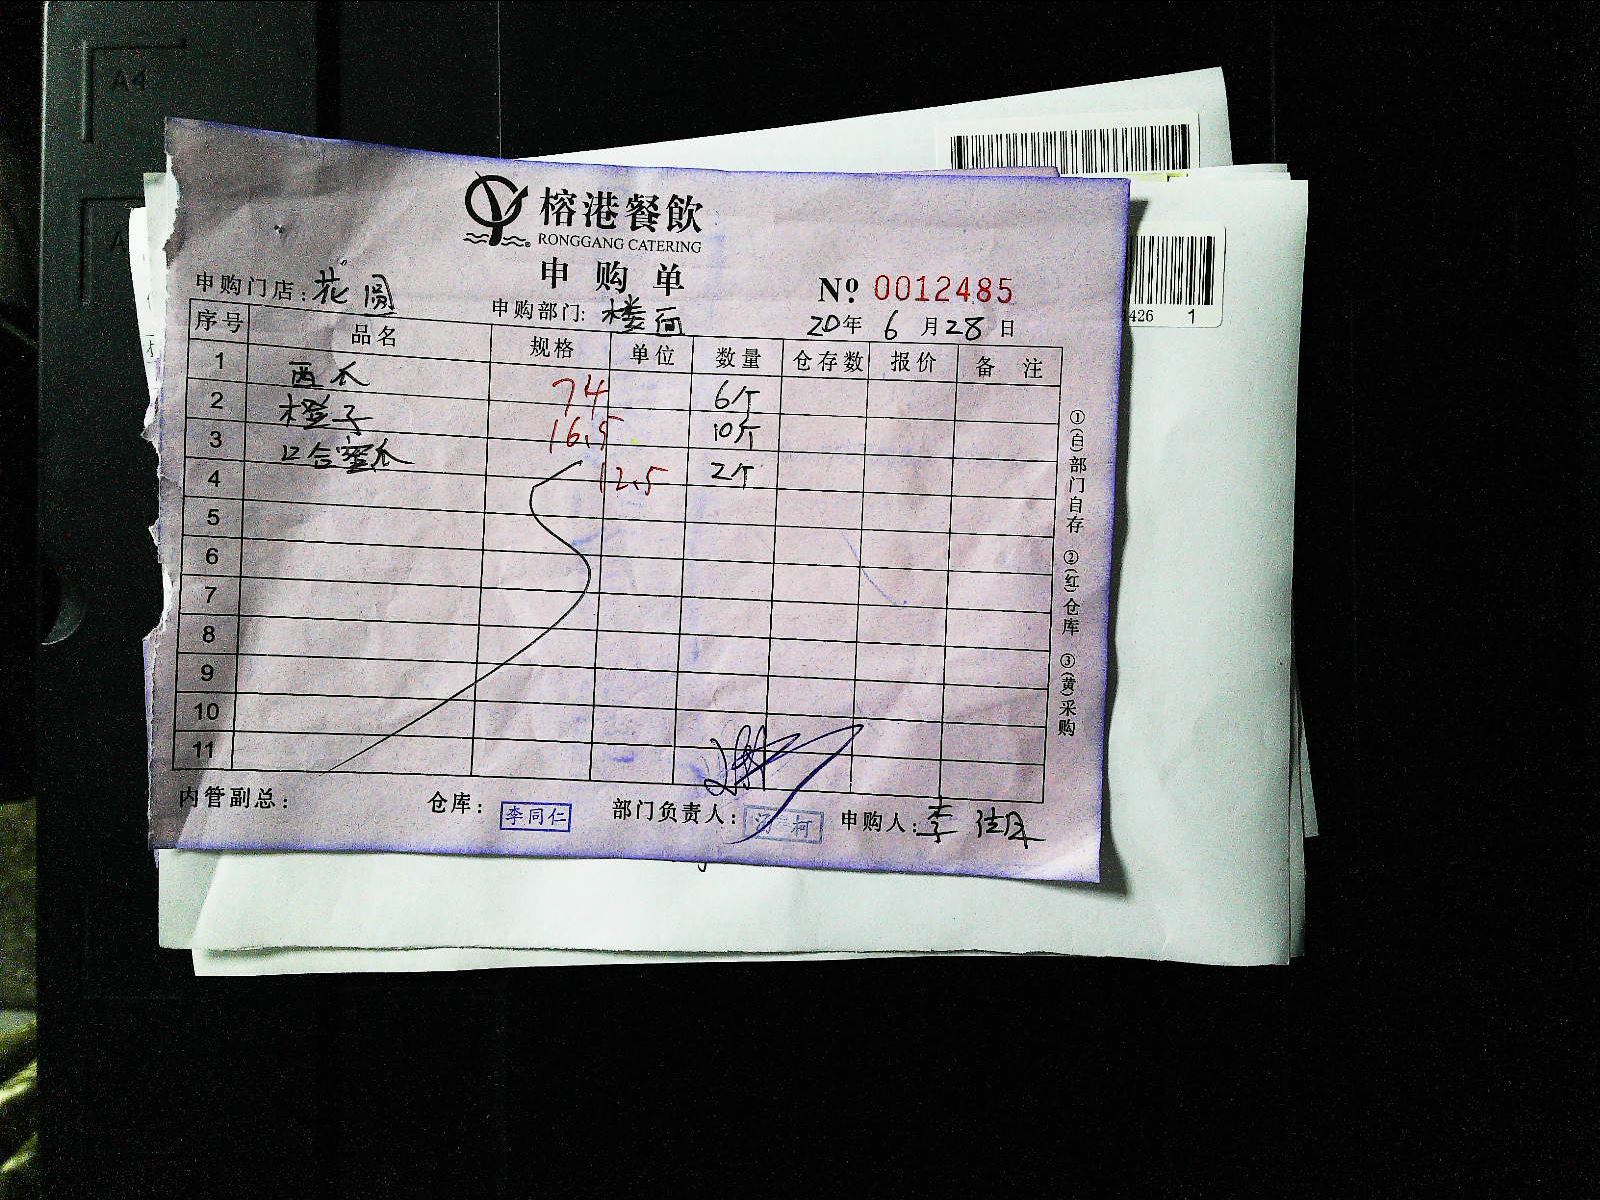 A4
榕港餐飲
RONGGANG CATERING
申购单
№ 0012485
申购门店：花园
申购部门：楼面
20年6月28日
序号 品名 规格 单位 数量 仓存数 报价 备注
1 西瓜 74 6个
2 橙子 16.5 10斤
3 口合蜜瓜 12.5 2个
4
5
6
7
8
9
10
11
①(白)部门自存 ②(红)仓库 ③(黄)采购
内管副总： 仓库：李同仁 部门负责人： 申购人：李
1426 1